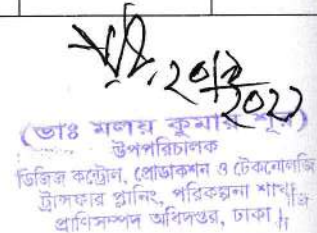 ২০/২
২০২২
(ডাঃ মলয় কুমার শূর)
উপপরিচালক
ডিজিজ কন্ট্রোল, প্রোডাকশন ও টেকনোলজি
ট্রান্সফার প্লানিং, পরিকল্পনা শাখা
প্রাণিসম্পদ অধিদপ্তর, ঢাকা।